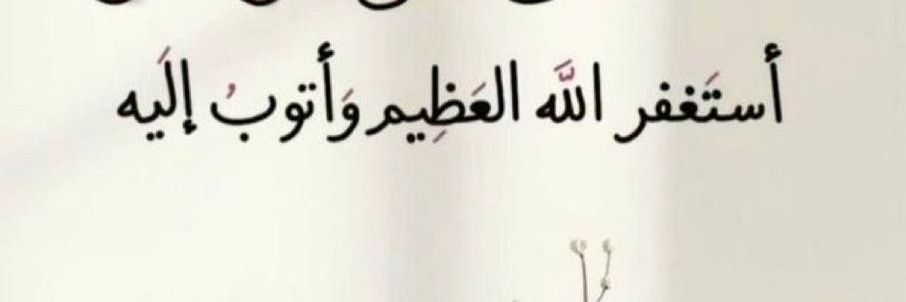 أستَغفر اللَّه العَظِيم وَأتوبُ إلَيه